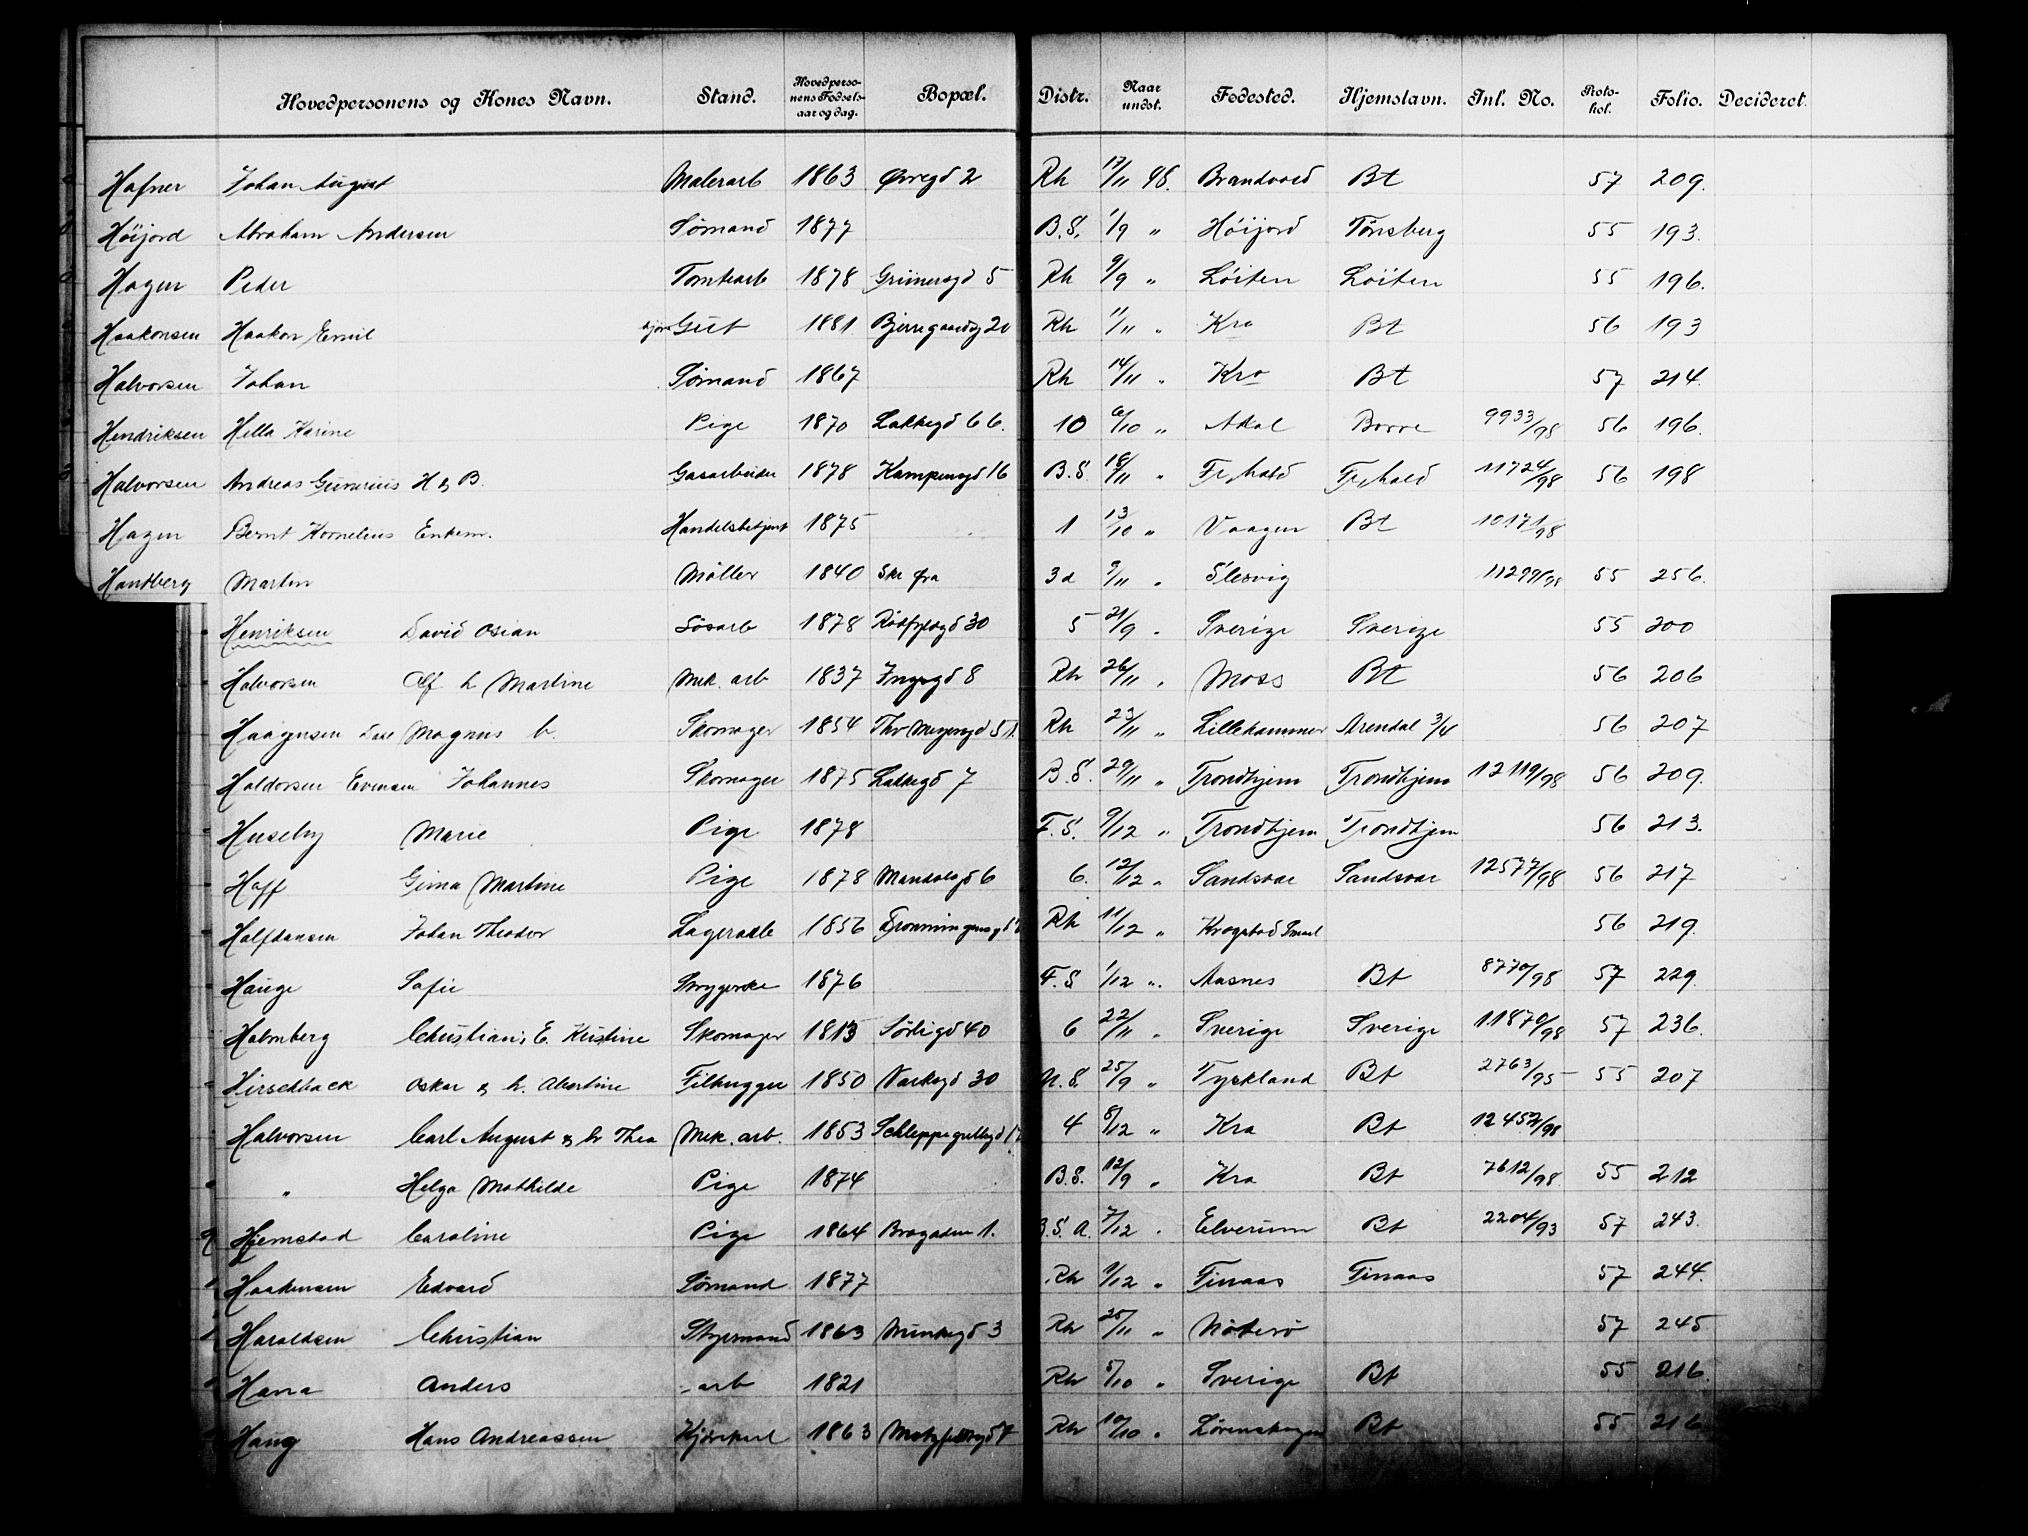 Hovedpersonens og Kones Navn. Stand. Hovedpersonens Fødselsaar og dag. Bopæl. Distr. Naar undst. Fødested. Hjemstavn. Inl. No. Protokol. Folio. Decideret.
Hafner Johan August Malerarb 1863 Øvregd 2 Rh 17/11 98. Brandvold Bt 57 209.
Höijord Abraham Andersen Sømand 1877 B.S. 1/9 " Höijord Tønsberg 55 193.
Hagen Peder Tomtearb 1878 Grünersgd 5 Rh 9/9 " Löiten Löiten 55 196.
Haakonsen Haakon Emil Gut 1881 Bjerregaardsg 20 Rh 11/11 " Kra Bt 56 193
Halvorsen Johan Sømand 1867 Rh 14/11 " Kra Bt 57 214.
Hendriksen Hella Karine Pige 1870 Lakkegd 66. 10 6/10 " Borre 9933/98 56 196.
Halvorsen Andreas Gunerius H & B. Gasarbeider 1878 Kampensgd 16 B.S. 18/11 " Fr,hald Fr,hald 11724/98 56 198
Hagen Bernt Kornelius Enkem. Handelsbetjent 1875 1 13/10 " Vaagen Bt 10171/98
Handberg Martin Møller 1840 3a 9/11 " Slesvig 11299/98 55 256.
Henriksen David Osian Løsarb 1878 Rødfyldgd 30 5 21/9 " Sverige Sverige 55 200
Halvorsen Alf h Martine Mek. arb 1837 Ingesgd 8 Rh 26/11 " Moss Bt 56 206
Haagensen Magnus h. Skomager 1854 Thv Meyersgd 51. Rh 23/11 " Lillehammer Arendal 3/4 56 207
Haldorsen Evensen Johannes Skomager 1875 Lakkegd 7 B.S. 29/11 " Trondhjem Trondhjem 12119/98 56 209.
Huseby Marie Pige 1878 F.S. 9/12 " Trondhjem Trondhjem 56 213.
Hoff Gina Martine Pige 1878 Mandalsgd 6 6. 12/12 " Sandsvær Sandsvær 12577/98 56 217
Halfdansen Johan Theodor 1856 Rh 11/12 " Krogstad Smaal 56 219.
Hauge Sofie Strygerske 1876 F.S 1/12 " Aasnes Bt 8770/98 57 229.
Holmberg Christian, E. Kristine Skomager 1813 Sørligd 40 6 22/11 " Sverige Sverige 11870/98 57 236.
Hirschback Oskar & h. Albertine Filhugger 1850 Vaksgd 30 N.S. 25/9 " Tyskland Bt 2763/95 55 207
Halvorsen Carl August & h Thea Mek. arb. 1853 Schleppegrellsgd 4 8/12 " Kra Bt 12457/98
" Helga Mathilde Pige 1874 B.S. 12/9 " Kra Bt 7612/98 55 212
Hjemstad Caroline Pige 1864 Brogaden 1. B.S.A. 7/12 " Elverum Bt 2204/93 57 243.
Haakensen Edvard Sømand 1877 Rh 9/12 " Tinaas Tinaas 57 244.
Haraldsen Christian Styrmand 1863 Munkegd 3 Rh 25/11 " Nøterö 57 245
Hana Anders arb 1821 Rh 5/10 " Sverige Bt 55 216.
Haug Hans Andreassen Kjørekarl 1863 Rh 10/10 " Lørenskogen Bt 55 216